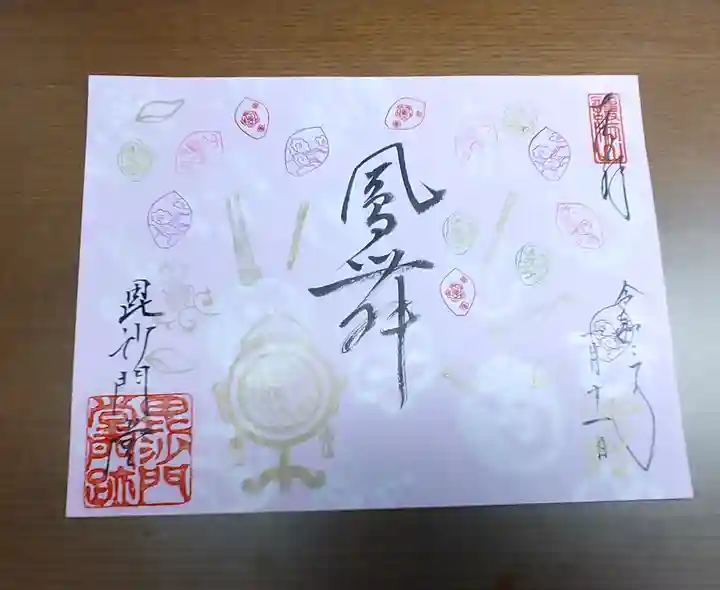 奉拝
鳳舞
令和二年
一月十一日
毘沙門堂
毘沙門
堂門跡